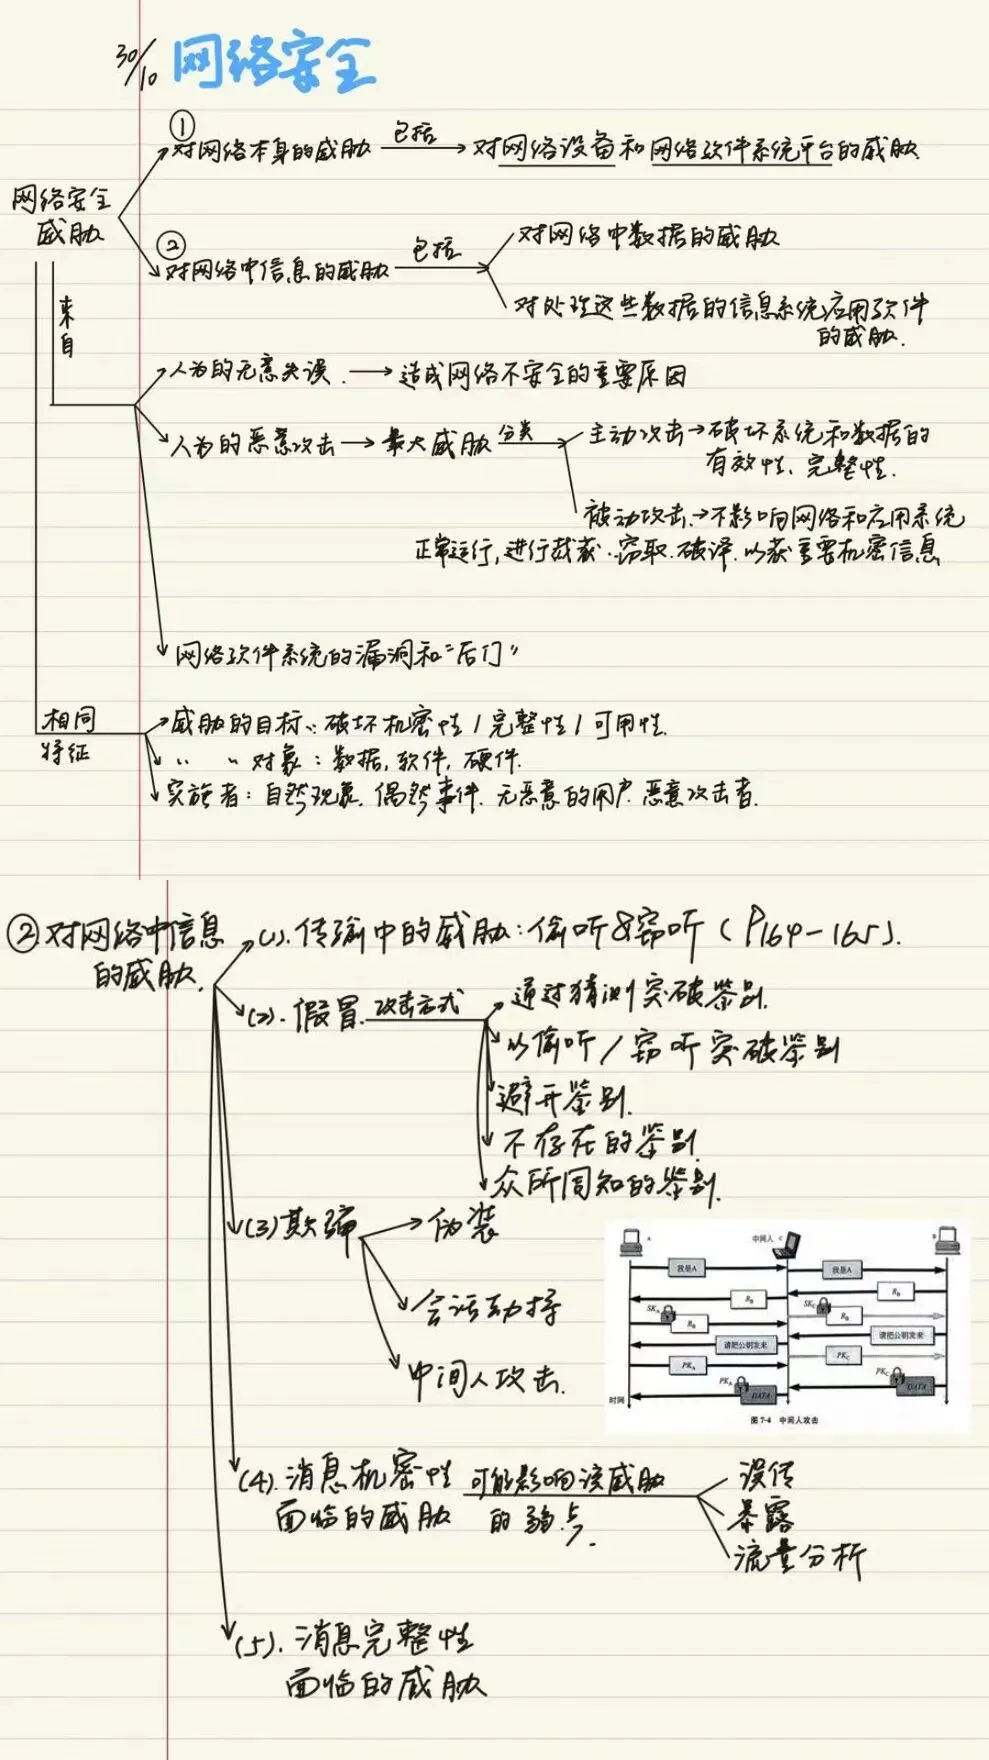 30/10 网络安全
网络安全
威胁
① 对网络本身的威胁 包括 对网络设备和网络软件系统平台的威胁
② 对网络中信息的威胁 包括 对网络中数据的威胁
对处理这些数据的信息系统应用软件
的威胁.
来自
人为的无意失误. 造成网络不安全的重要原因
人为的恶意攻击 最大威胁 分类 主动攻击→破坏系统和数据的
有效性、完整性.
被动攻击→不影响网络和应用系统
正常运行,进行截获.窃取.破译.以获重要机密信息
网络软件系统的漏洞和“后门”
相同
特征
威胁的目标:破坏机密性/完整性/可用性.
〃 〃 对象:数据,软件,硬件.
实施者:自然现象.偶然事件.无恶意的用户.恶意攻击者.
②对网络中信息
的威胁.
(1).传输中的威胁:偷听&窃听(P164-165).
(2).假冒. 攻击方式 通过猜测突破鉴别.
以偷听/窃听突破鉴别
避开鉴别.
不存在的鉴别.
众所周知的鉴别.
(3)欺骗 伪装
会话劫持
中间人攻击.
A 中间人 C B
我是A 我是A
R_B R_B
SK_A R_B SK_C R_B
请把公钥发来 请把公钥发来
PK_A PK_C
PK_A DATA PK_C DATA
时间
图 7-4 中间人攻击
(4).消息机密性
面临的威胁
可能影响该威胁
的弱点.
误传
暴露
流量分析
(5).消息完整性
面临的威胁